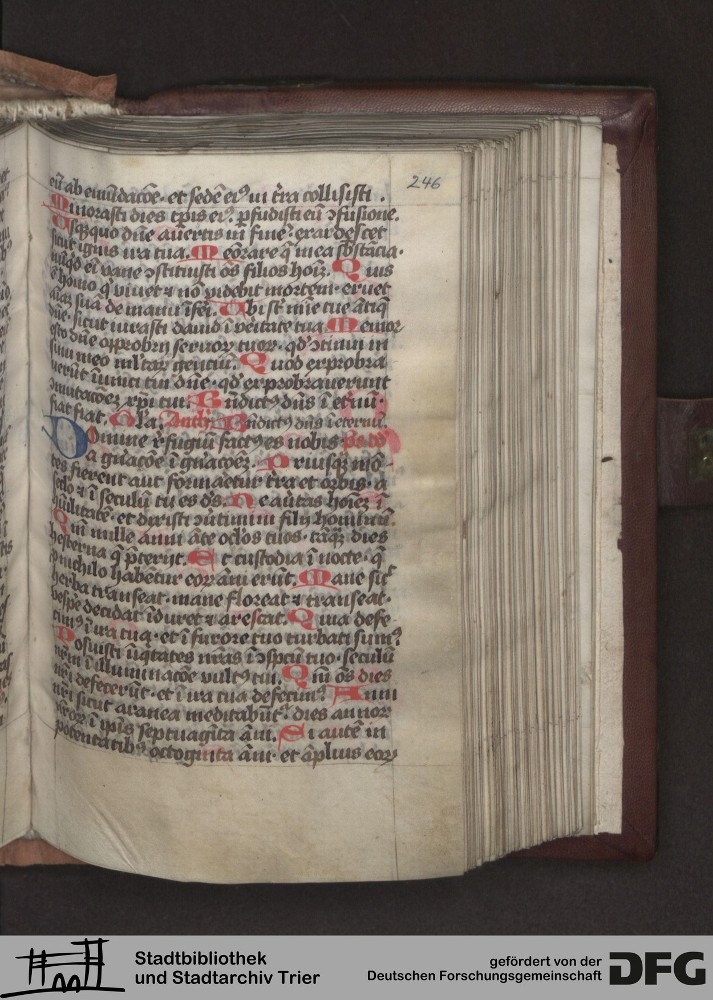 246
eū ab emūdacōe · et sedē eiꝰ in t̄ra collisisti .
Minorasti dies tp̄is eiꝰ · ꝑfudisti eū ꝯfusione .
Usqꝫquo dn̄e auertis in finē exardescet
sicut ignis ira tua . Memorare q̄ mea sb̄stācia ·
nūqd ei vane ꝯstituisti oēs filios hoīm . Quis
ē homo q viuet ⁊ nō videbit mortem · eruet
aīaꝫ suā de manu īferi . Ubi st̄ mīe tue ātiq̄
dn̄e · sicut iurasti dauid ī veritate tua Memor
esto dn̄e opprobrij seruoꝝ tuoꝝ · qd̓ ꝯtinui in
sinu meo multaꝝ genciū . Quod exprobra
uerūt īimici tui dn̄e · qd̓ exprobrauerunt
ꝯmutacōeꝫ xp̄i tui . Bn̄dictꝰ dn̄s ī etnū ·
fiat fiat . Gl̓a . Anth̓ . Bn̄dictꝰ dn̄s ī eternū .
Domine refugiū factꝰ es nobis ps dd̓
a gn̄acōe ī gn̄acōeꝫ . Priusqꝫ mō
tes fierent aut formaetur t̄ra et orbis · a
sclo ⁊ ī seculū tu es ds̄ . Ne auertas hoīeꝫ ī
hūilitatē · et dixisti ꝯuertimini filij hominū .
Qm̄ mille anni āte oclos tuos · tāqꝫ dies
hesterna q̄ p̄terijt . Et custodia ī nocte · q̄
ꝓ nichilo habētur eoꝝ āni erūt . Mane sic̄
herba transeat · mane floreat ⁊ transeat ·
vespe decidat īduret ⁊ arescat . Quia defe
cimꝰ ī ira tua · et ī furore tuo turbati sumꝰ
Posuisti īiqtates nr̄as ī ꝯspcū tuo · seculū
nr̄m ī illuminacōe vultꝰ tui . Qm̄ oēs dies
nr̄i defecerūt · et ī ira tua defecimꝰ . Anni
nr̄i sicut aranea meditabūt̄ · dies annoꝝ
nr̄oꝝ ī ipīs septuagīta āni . Si autē in
potentatibꝰ octoginta āni · et āplius eoꝝ
Stadtbibliothek
und Stadtarchiv Trier
gefördert von der
Deutschen Forschungsgemeinschaft DFG